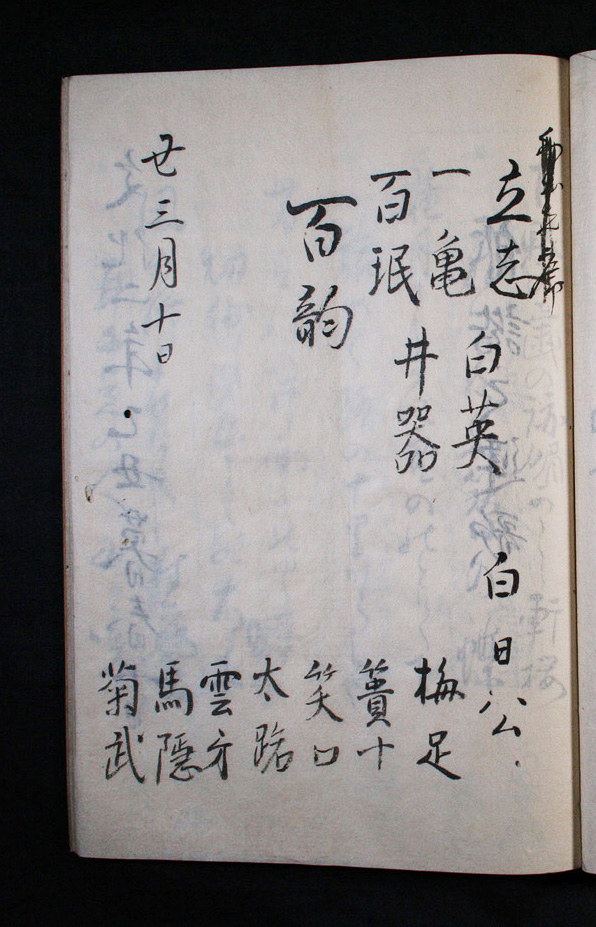 立志
白英
白日公
一亀
井器
梅足
百珉
簣十
百韵
笑口
太路
雲牙
馬隠
菊武
廿三月十日